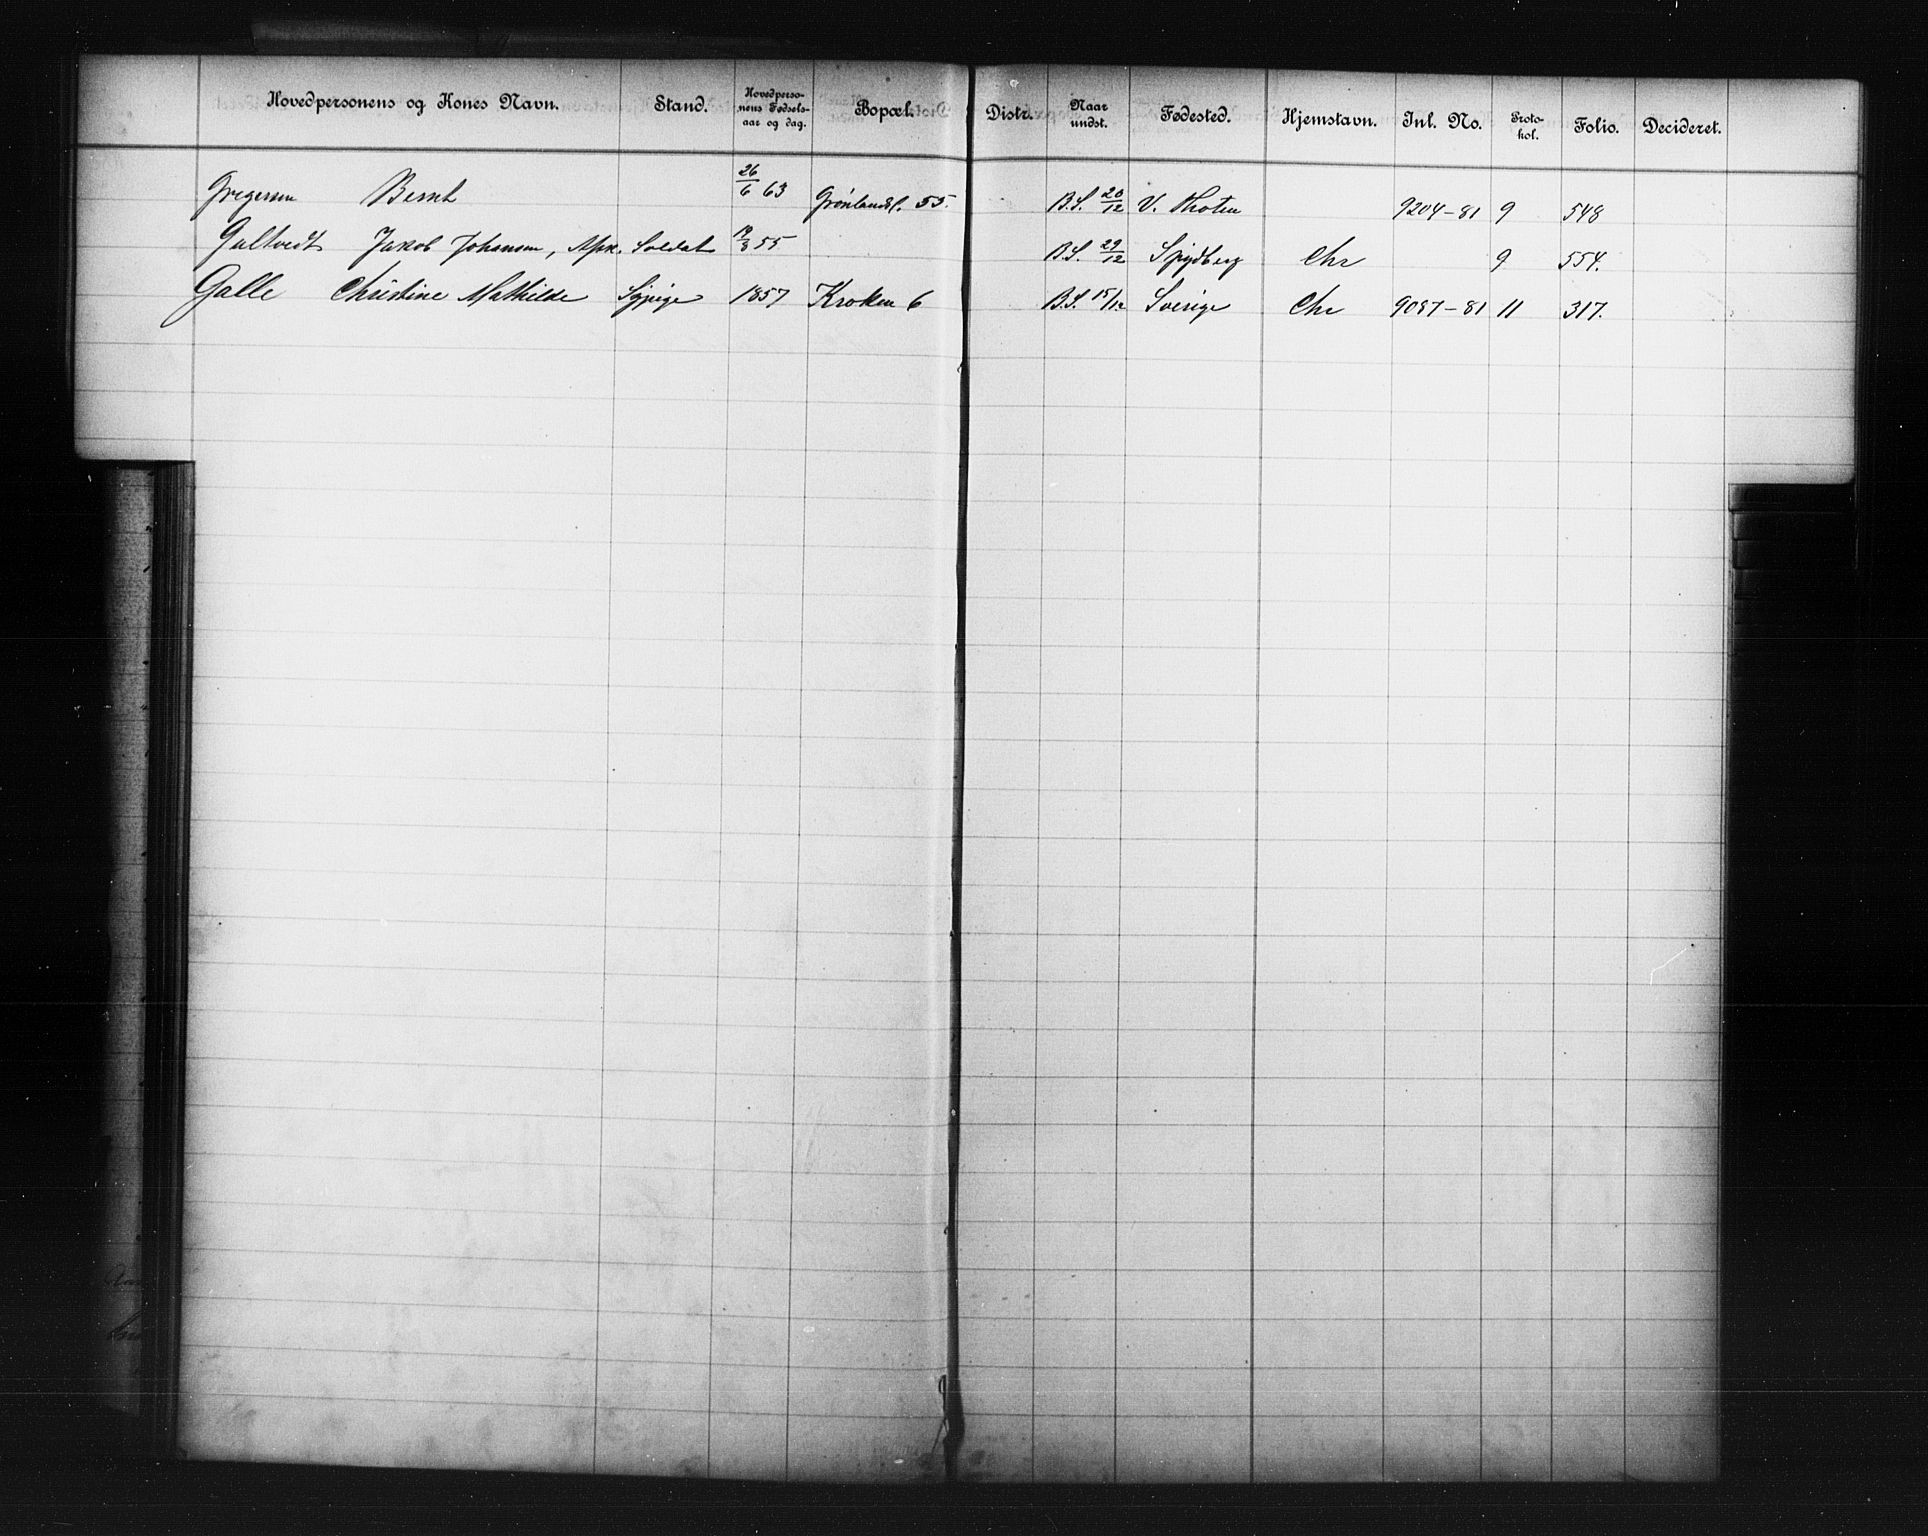 Hovedpersonens og Kones Navn. Stand. Hovedperso-nens Fødsels-aar og dag. Bopæl. Distr. Naar undst. Fødested. Hjemstavn. Inl. No. Proto-kol. Folio. Decideret.
Gregersen Bernt 26/6 63 Grønlandsl. 55. B.S. 20/12 V. Thoten 9204-81 9 548
Galtvedt Jakob Johansen, Soldat 55 B.S. 29/12 Spydberg Chr 9 554.
Galle Christine Mathilde Sypige 1857 Kroken 6 B.S. 15/12 Sverige Chr 9087-81 11 317.